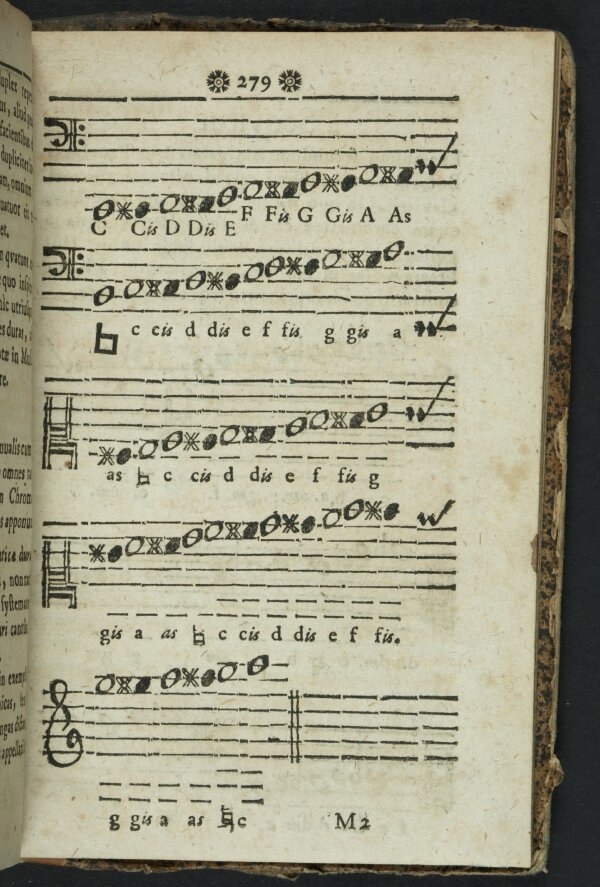 279
C Cis D Dis E F Fis G Gis A As
♮ c cis d dis e f fis g gis a
as ♮ c cis d dis e f fis g
gis a as ♮ c cis d dis e f fis.
g gis a as ♮ c
M2